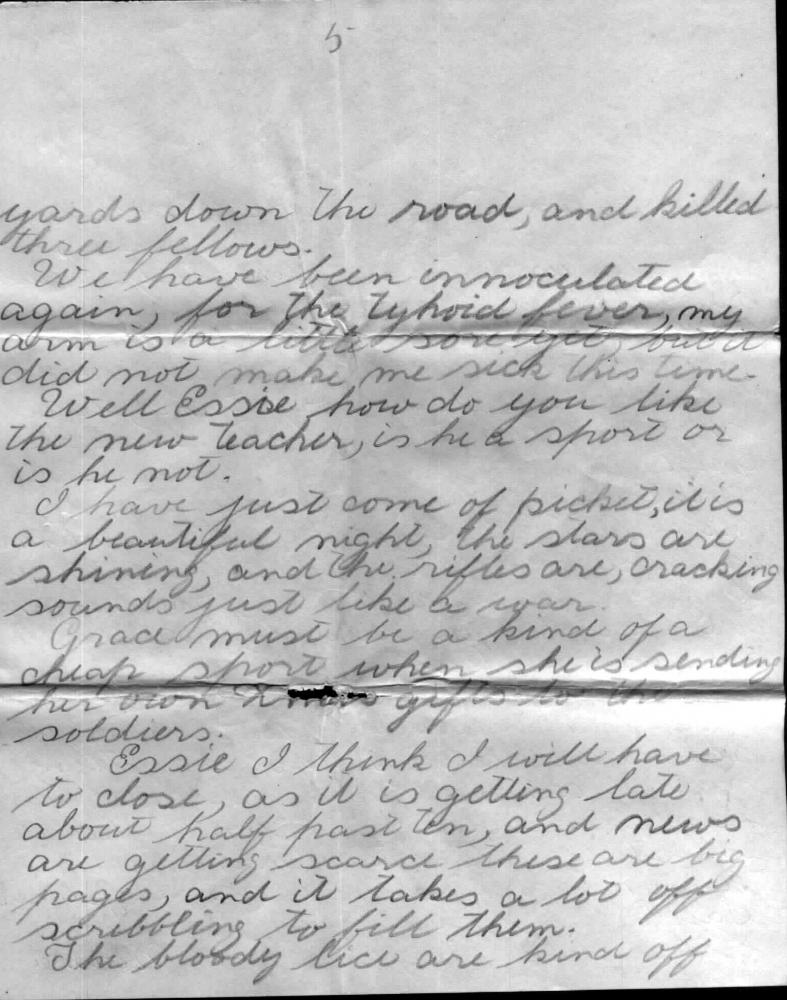 5
yards down the road, and killed
three fellows.
We have been innoculated
again, for the tyhoid fever, my
arm is a little sore yet, but it
did not make me sick this time.
Well Essie how do you like
the new teacher, is he a sport or
is he not.
I have just come of picket, it is
a beautiful night, the stars are
shining, and the rifles are, cracking
sounds just like a war.
Grace must be a kind of a
cheap sport when she is sending
her own Xmas gifts to the
soldiers.
Essie I think I will have
to close, as it is getting late
about half past ten, and news
are getting scarce these are big
pages, and it takes a lot off
scribbling to fill them.
The bloody lice are kind off